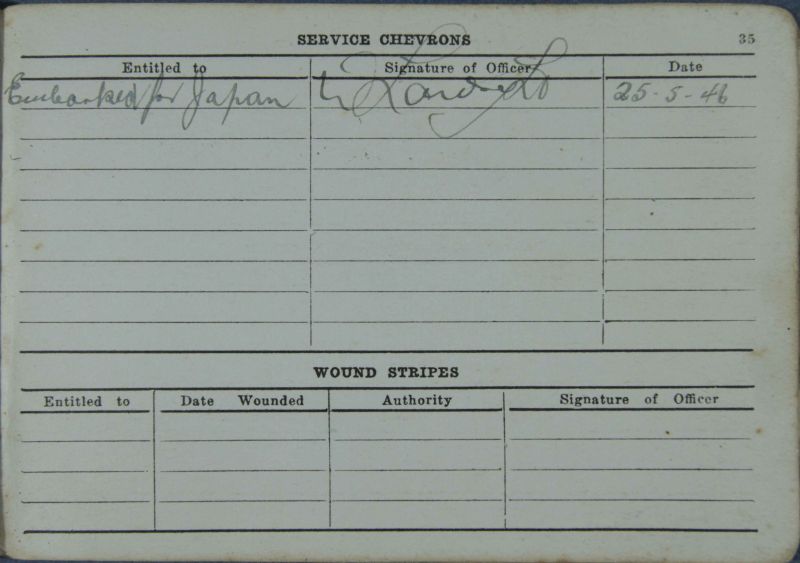 SERVICE CHEVRONS 35
Entitled to Signature of Officer Date
Embarked for Japan 25-5-46
WOUND STRIPES
Entitled to Date Wounded Authority Signature of Officer